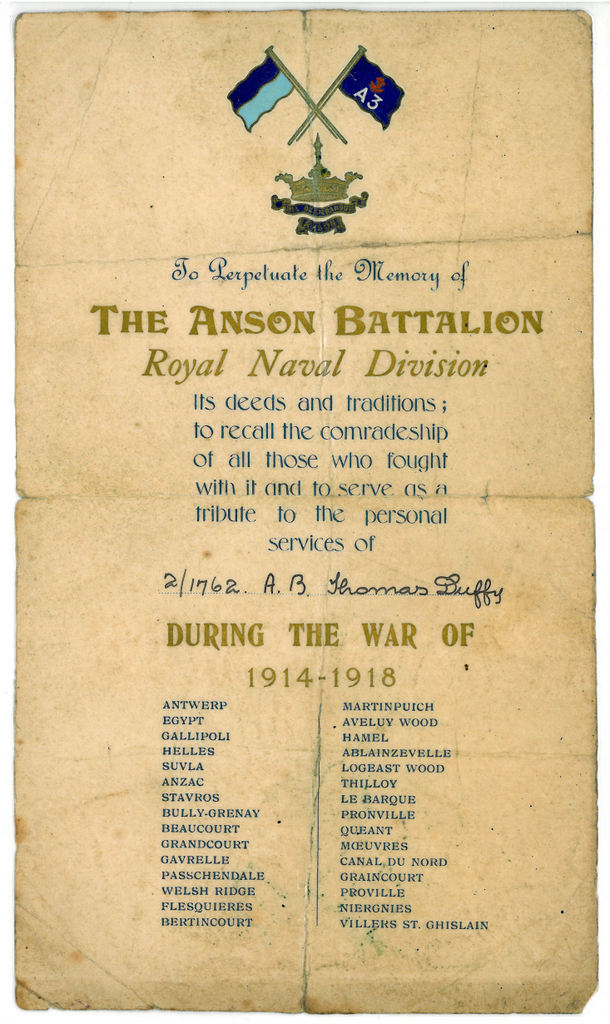 A3
ANSON
To Perpetuate the Memory of
THE ANSON BATTALION
Royal Naval Division
Its deeds and traditions;
to recall the comradeship
of all those who fought
with it and to serve as a
tribute to the personal
services of
2/1762. A.B. Thomas Duffy
DURING THE WAR OF
1914-1918
ANTWERP
EGYPT
GALLIPOLI
HELLES
SUVLA
ANZAC
STAVROS
BULLY-GRENAY
BEAUCOURT
GRANDCOURT
GAVRELLE
PASSCHENDALE
WELSH RIDGE
FLESQUIERES
BERTINCOURT
MARTINPUICH
AVELUY WOOD
HAMEL
ABLAINZEVELLE
LOGEAST WOOD
THILLOY
LE BARQUE
PRONVILLE
QUEANT
MŒUVRES
CANAL DU NORD
GRAINCOURT
PROVILLE
NIERGNIES
VILLERS ST. GHISLAIN